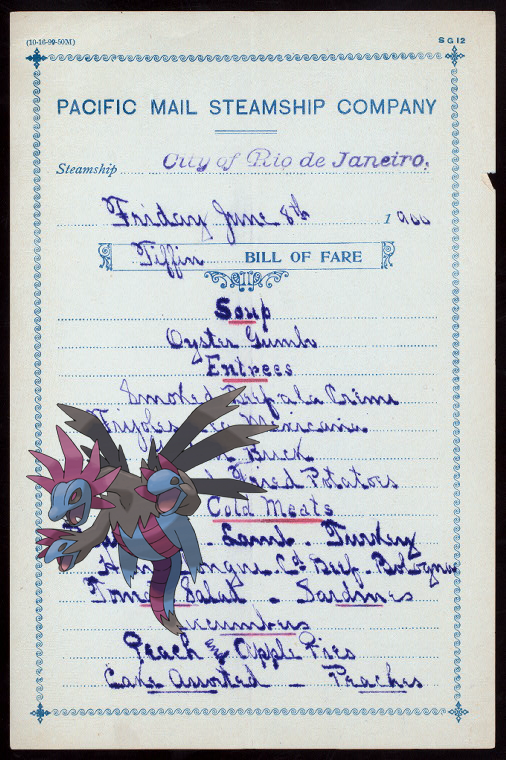 (10-16-99-50M)
SG12
PACIFIC MAIL STEAMSHIP COMPANY
Steamship City of Rio de Janeiro.
Friday June 8th 1900
Tiffin BILL OF FARE
Soup
Oyster Gumbo
Entrees
Smoked Beef a la Creme
Frijoles Mexicana
Buck
Fried Potatoes
Cold Meats
Lamb - Turkey
Cd Beef - Bologna
Salad - Sardines
Peach and Apple Pies
Cake Assorted - Peaches